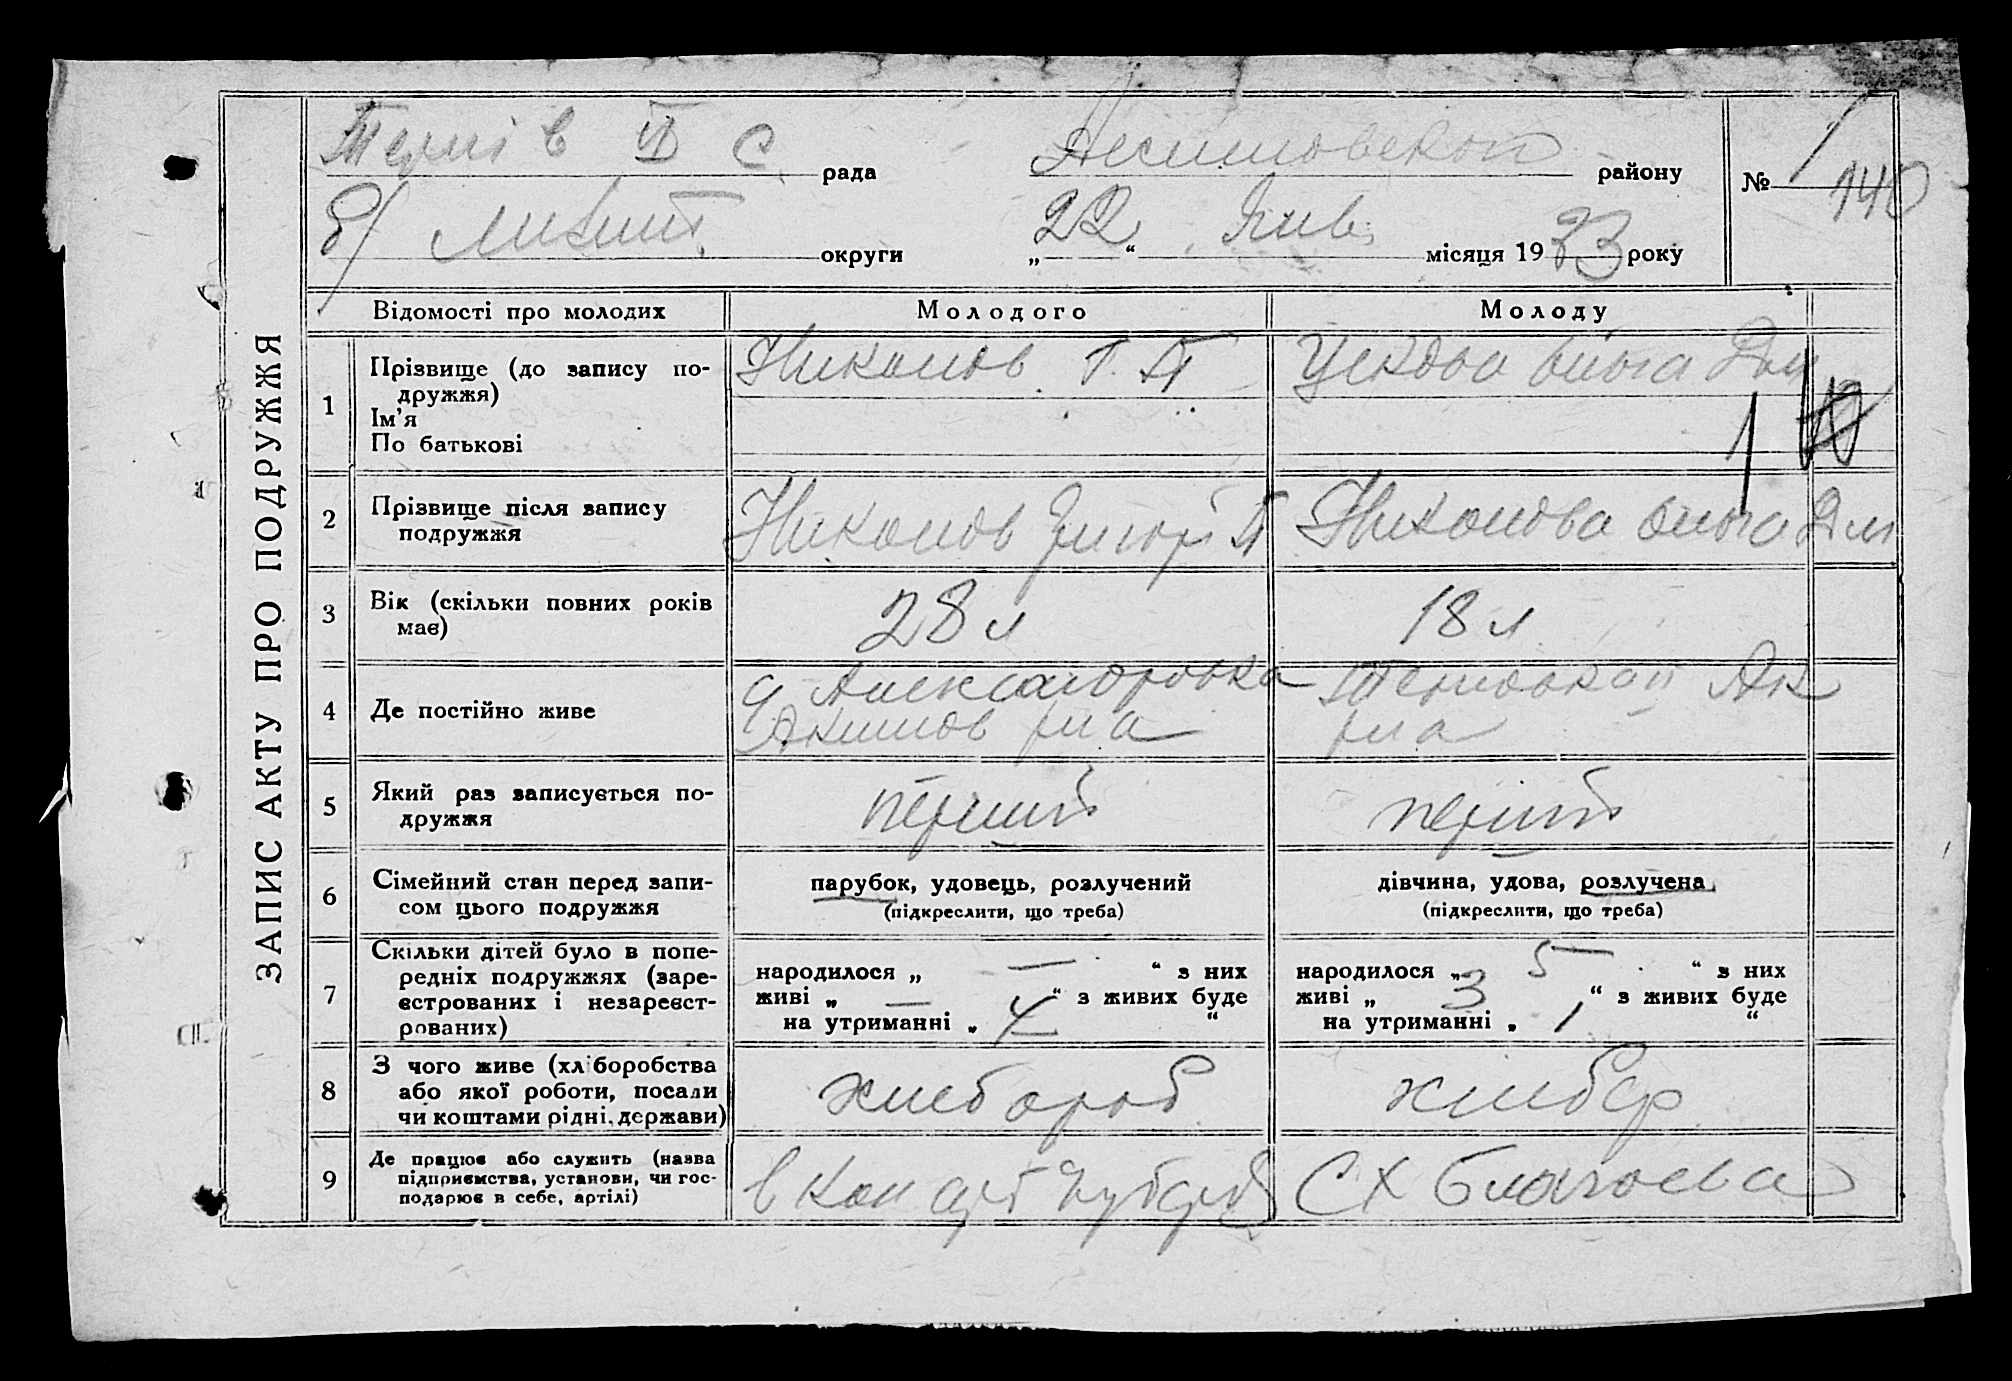 ЗАПИС АКТУ ПРО ПОДРУЖЖЯ
рада
району
№ 1
140
б/ Меліт. округи
„ 22 “ Янв. місяця 1933 року
Відомості про молодих
Молодого
Молоду
1
Прізвище (до запису по-
дружжя)
Ім’я
По батькові
Никонов Г. П
140
2
Прізвище після запису
подружжя
Никонов П
Никонова
3
Вік (скільки повних років
має)
28 л
18 л
4
Де постійно живе
Александровка
Акимов р-на
Ак
р-на
5
Який раз записується по-
дружжя
перший
перший
6
Сімейний стан перед запи-
сом цього подружжя
парубок, удовець, розлучений
(підкреслити, що треба)
дівчина, удова, розлучена
(підкреслити, що треба)
7
Скільки дітей було в попе-
редніх подружжях (заре-
єстрованих і незареєст-
рованих)
народилося „ — “ з них
живі „ — “ з живих буде
на утриманні „ “
народилося „ 5 “ з них
живі „ 3 “ з живих буде
на утриманні „ 1 “
8
З чого живе (хліборобства
або якої роботи, посади
чи коштами рідні, держави)
хлебороб
хлебор
9
Де працює або служить (назва
підприємства, установи, чи гос-
подарює в себе, артілі)
в
СХ Благоева